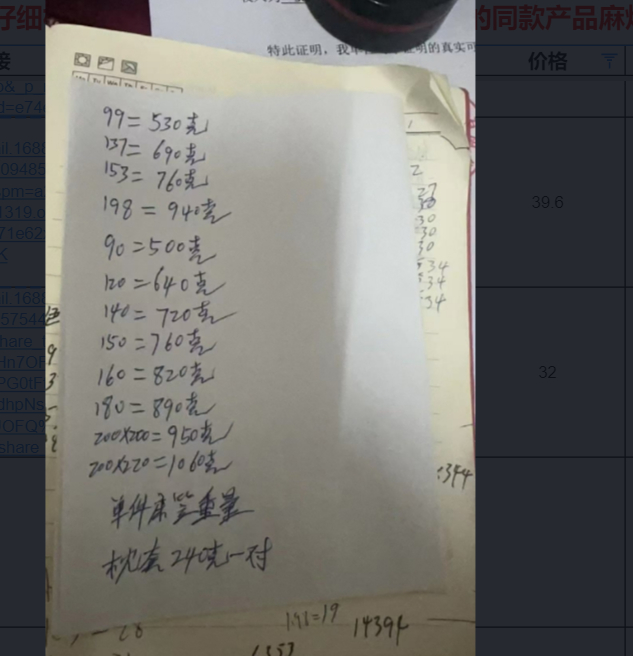 仔细
的同款产品麻烦
价格
39.6
32
特此证明,我单
明的真实可
99=530克
137=690克
153=760克
198=940克
90=500克
120=640克
140=720克
150=760克
160=820克
180=890克
200X200=950克
200X220=1060克
单件床笠重量
枕套240克一对
27
30
30
30
30
34
34
34
14394